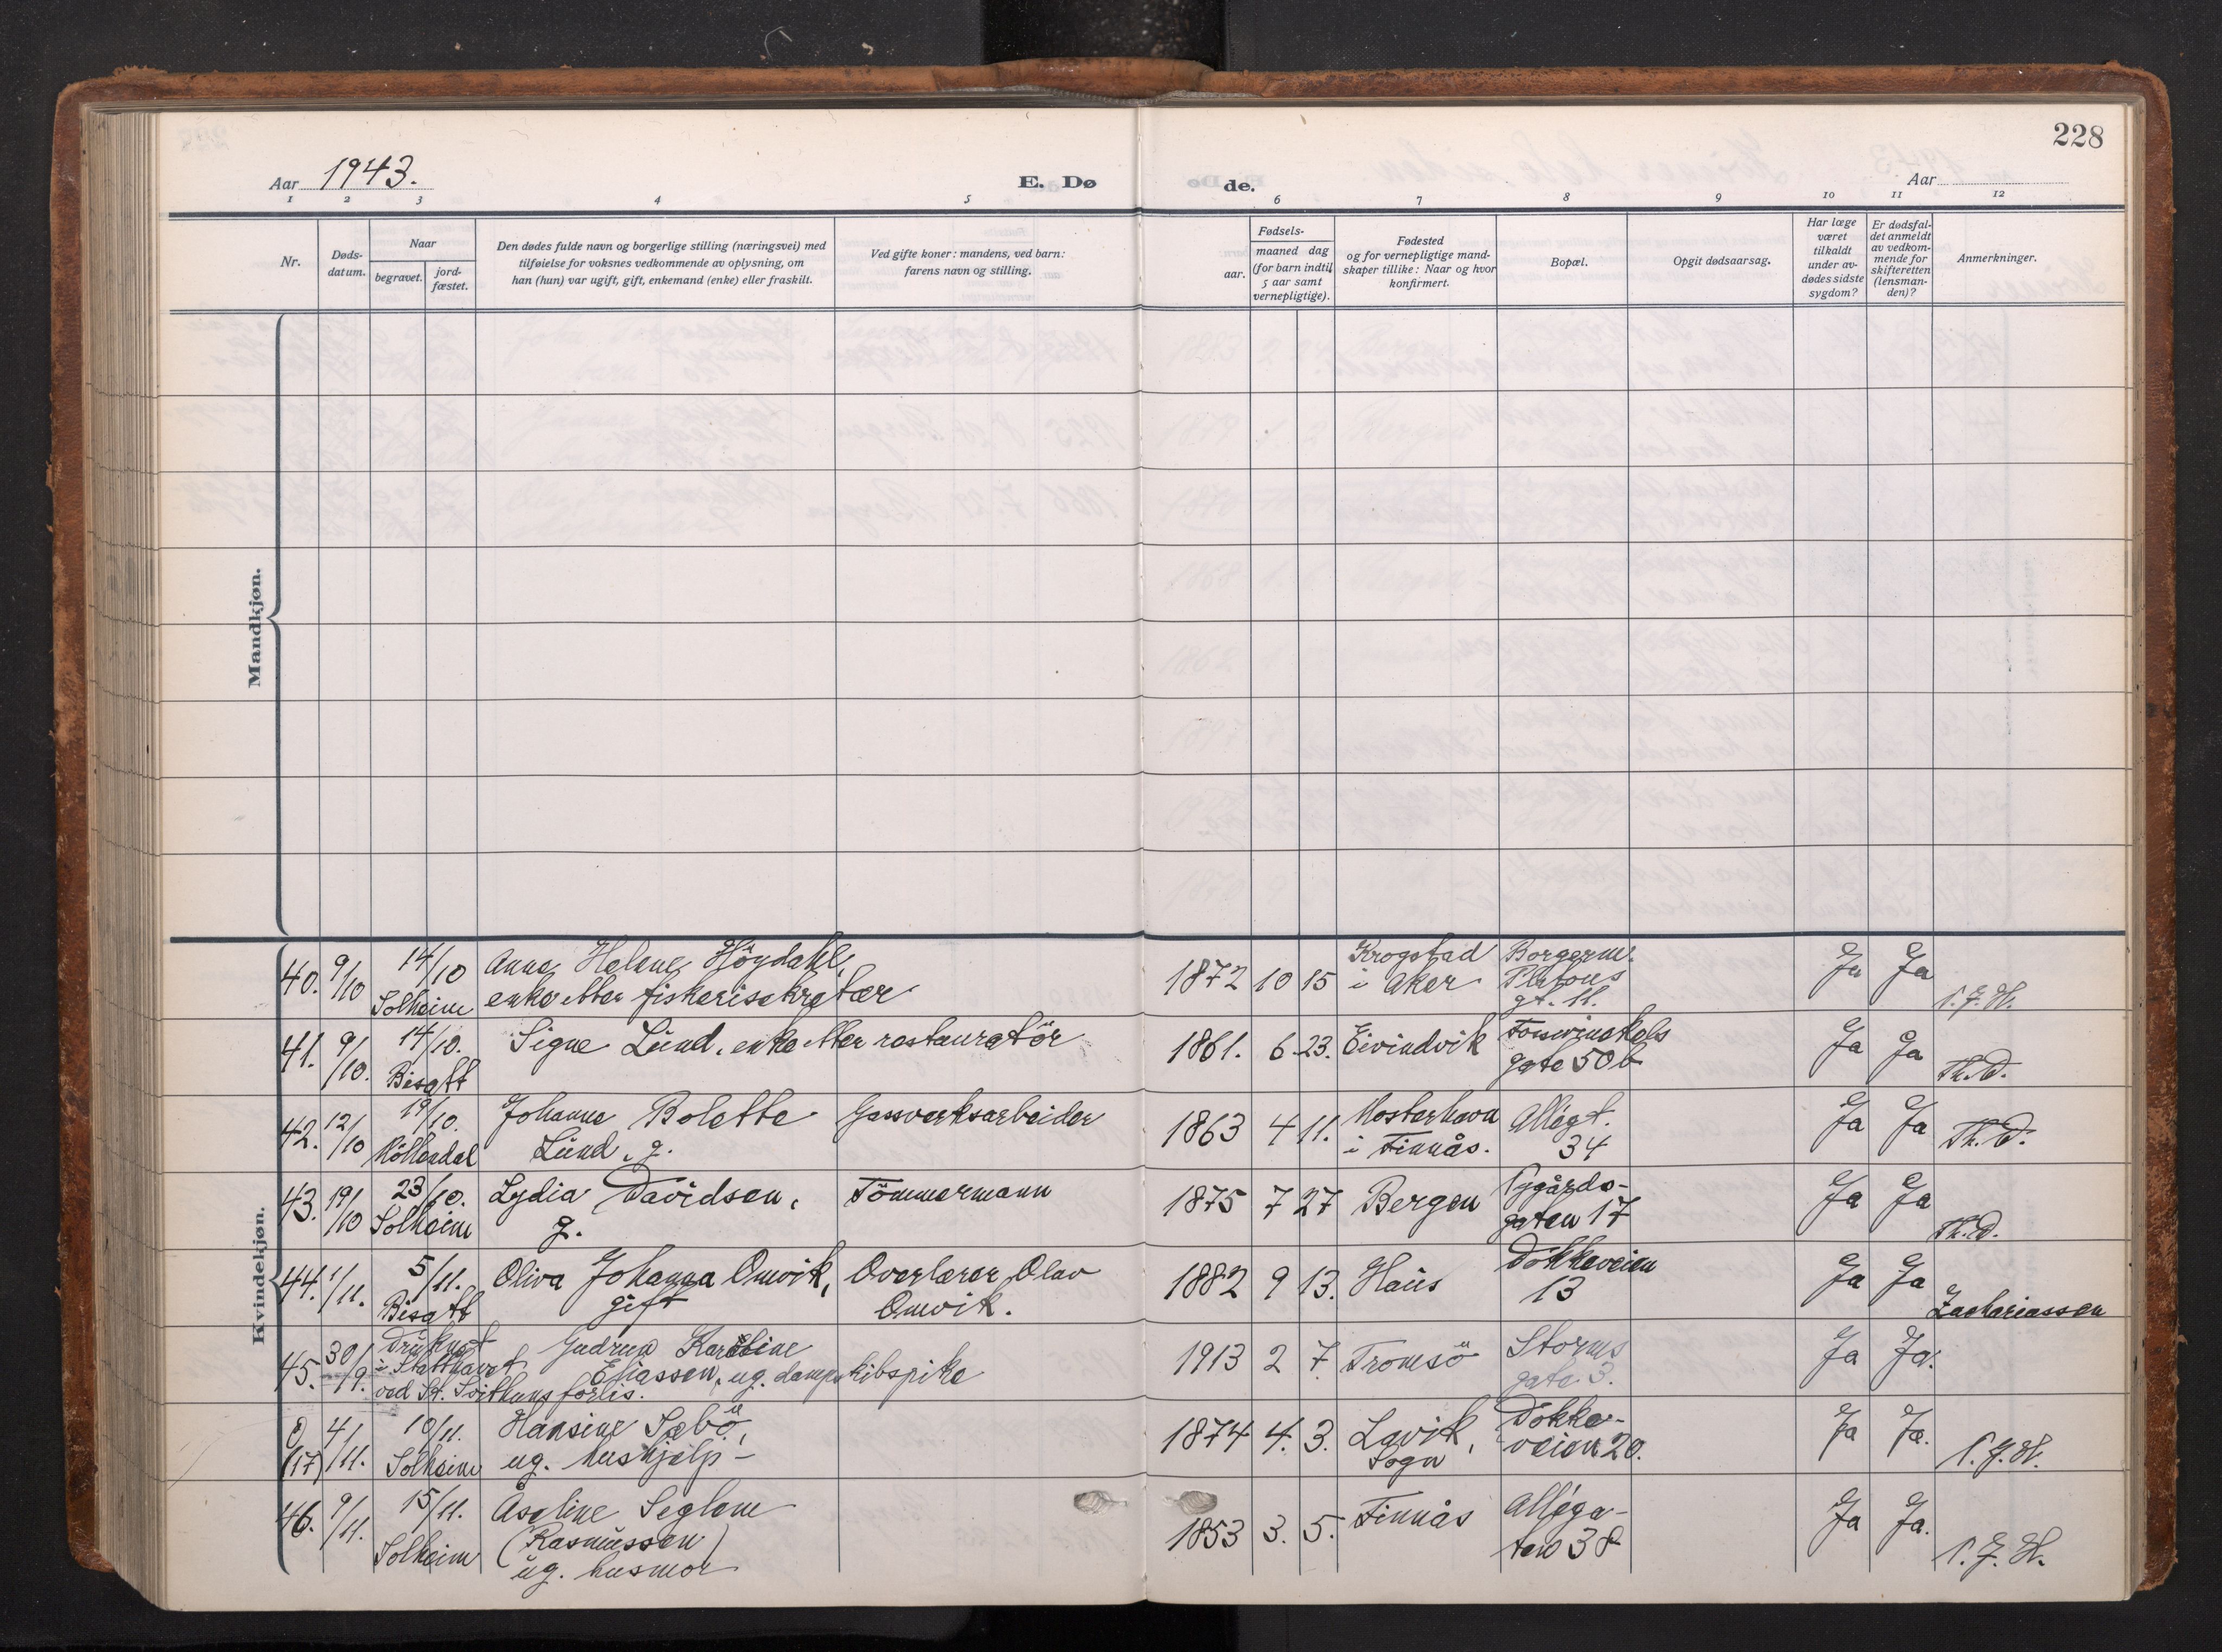 228
Aar 1943.
E. Dø
de.
Aar
1 2 3 4 5 6 7 8 9 10 11 12
Nr.
Døds-
datum.
Naar
begravet.
jord-
fæstet.
Den dødes fulde navn og borgerlige stilling (næringsvei) med
tilføielse for voksnes vedkommende av oplysning, om
han (hun) var ugift, gift, enkemand (enke) eller fraskilt.
Ved gifte koner: mandens, ved barn:
farens navn og stilling.
Fødsels-
aar.
maaned dag
(for barn indtil
5 aar samt
vernepligtige).
Fødested
og for vernepligtige mand-
skaper tillike: Naar og hvor
konfirmert.
Bopæl.
Opgit dødsaarsag.
Har læge
været
tilkaldt
under av-
dødes sidste
sygdom?
Er dødsfal-
det anmeldt
av vedkom-
mende for
skifteretten
(lensman-
den)?
Anmerkninger.
Mandkjøn.
Kvindekjøn.
40. 9/10 14/10 Anna Helene Höydahl, 1872 10 15 Krogstad Borgerm. Ja Ja
Solheim enke etter fiskerisekretær i Aker Platous
gt. 11.
41. 9/10. 14/10. Signe Lund, enke etter restauratör 1861. 6 23. Eivindvik Ja Ja Th.D.
Bisatt gate 50b
42. 12/10 19/10. Johanna Bolette Gassverksarbeider 1863 4 11. Mosterhavn Allégt. Ja Ja Th.D.
Möllendal Lund, g. i Finnås. 34
43. 19/10 23/10. Lydia Davidsen, Tömmermann 1875 7 27 Bergen Nygårds- Ja Ja Th.D.
Solheim g. gaten 17
44. 1/11. 5/11. Oliva Johanna Omvik, Overlærer Olav 1882 9 13. Haus Dokkeveien Ja Ja Zachariassen
Bisatt gift Omvik. 13
45. 30/9. Druknet Gudrun Karoline 1913 2 7. Tromsö Storms Ja Ja.
i Statthavet Eliassen, ug. dampskibspike gate 3.
ved St. Svithuns forlis.
0 4/11. 10/11. Hansine Sæbö, 1874 4. 3. Lavik, Dokke- Ja Ja.
(17) Solheim ug. hushjelp – Sogn veien 20.
46. 9/11. 15/11. Åseline Seglem 1853 3. 5. Finnås Alléga- Ja Ja.
Solheim (Rasmussen) ten 38
ug. husmor